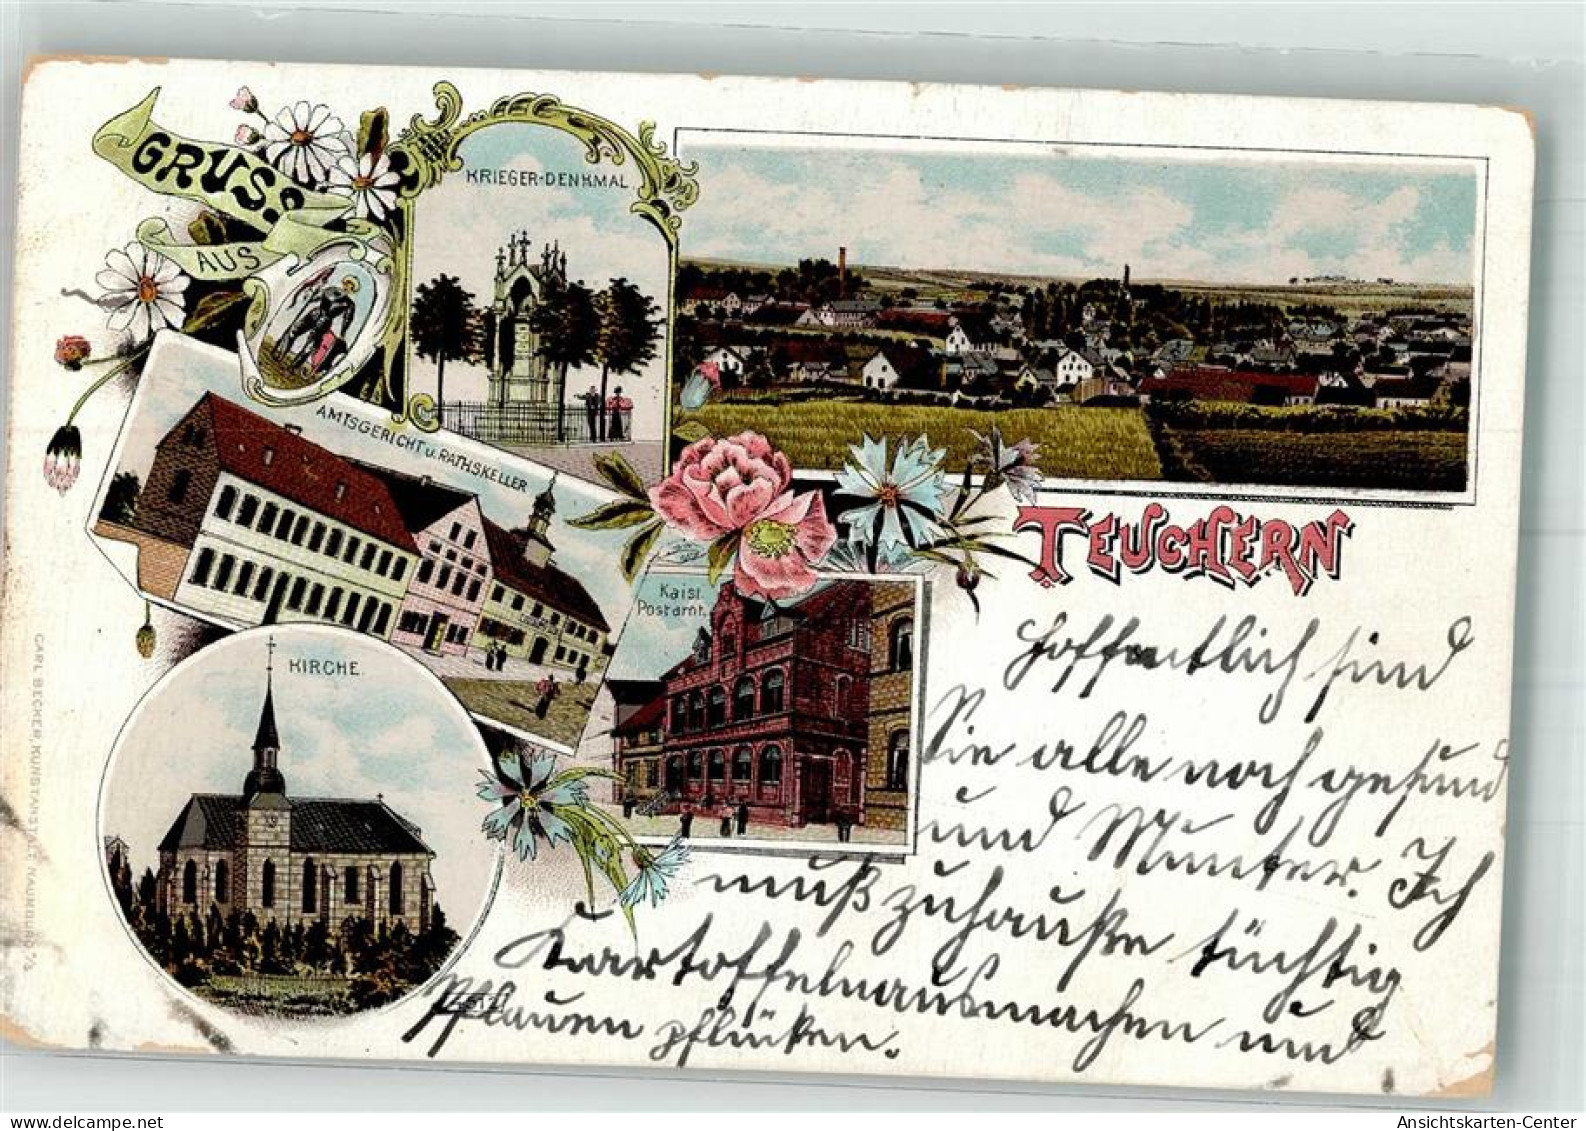 GRUSS
AUS
KRIEGER-DENKMAL
AMTSGERICHT u. RATHSKELLER
TEUCHERN
Kaisl.
Postamt.
KIRCHE.
Hoffentlich sind
Sie alle noch gesund
und Munter. Ich
muß zuhauße tüchtig
Kartoffelnausmachen und
Pflauen pflüken.
CARL BECKER, KUNSTANSTALT, NAUMBURG
Ansichtskarten-Center